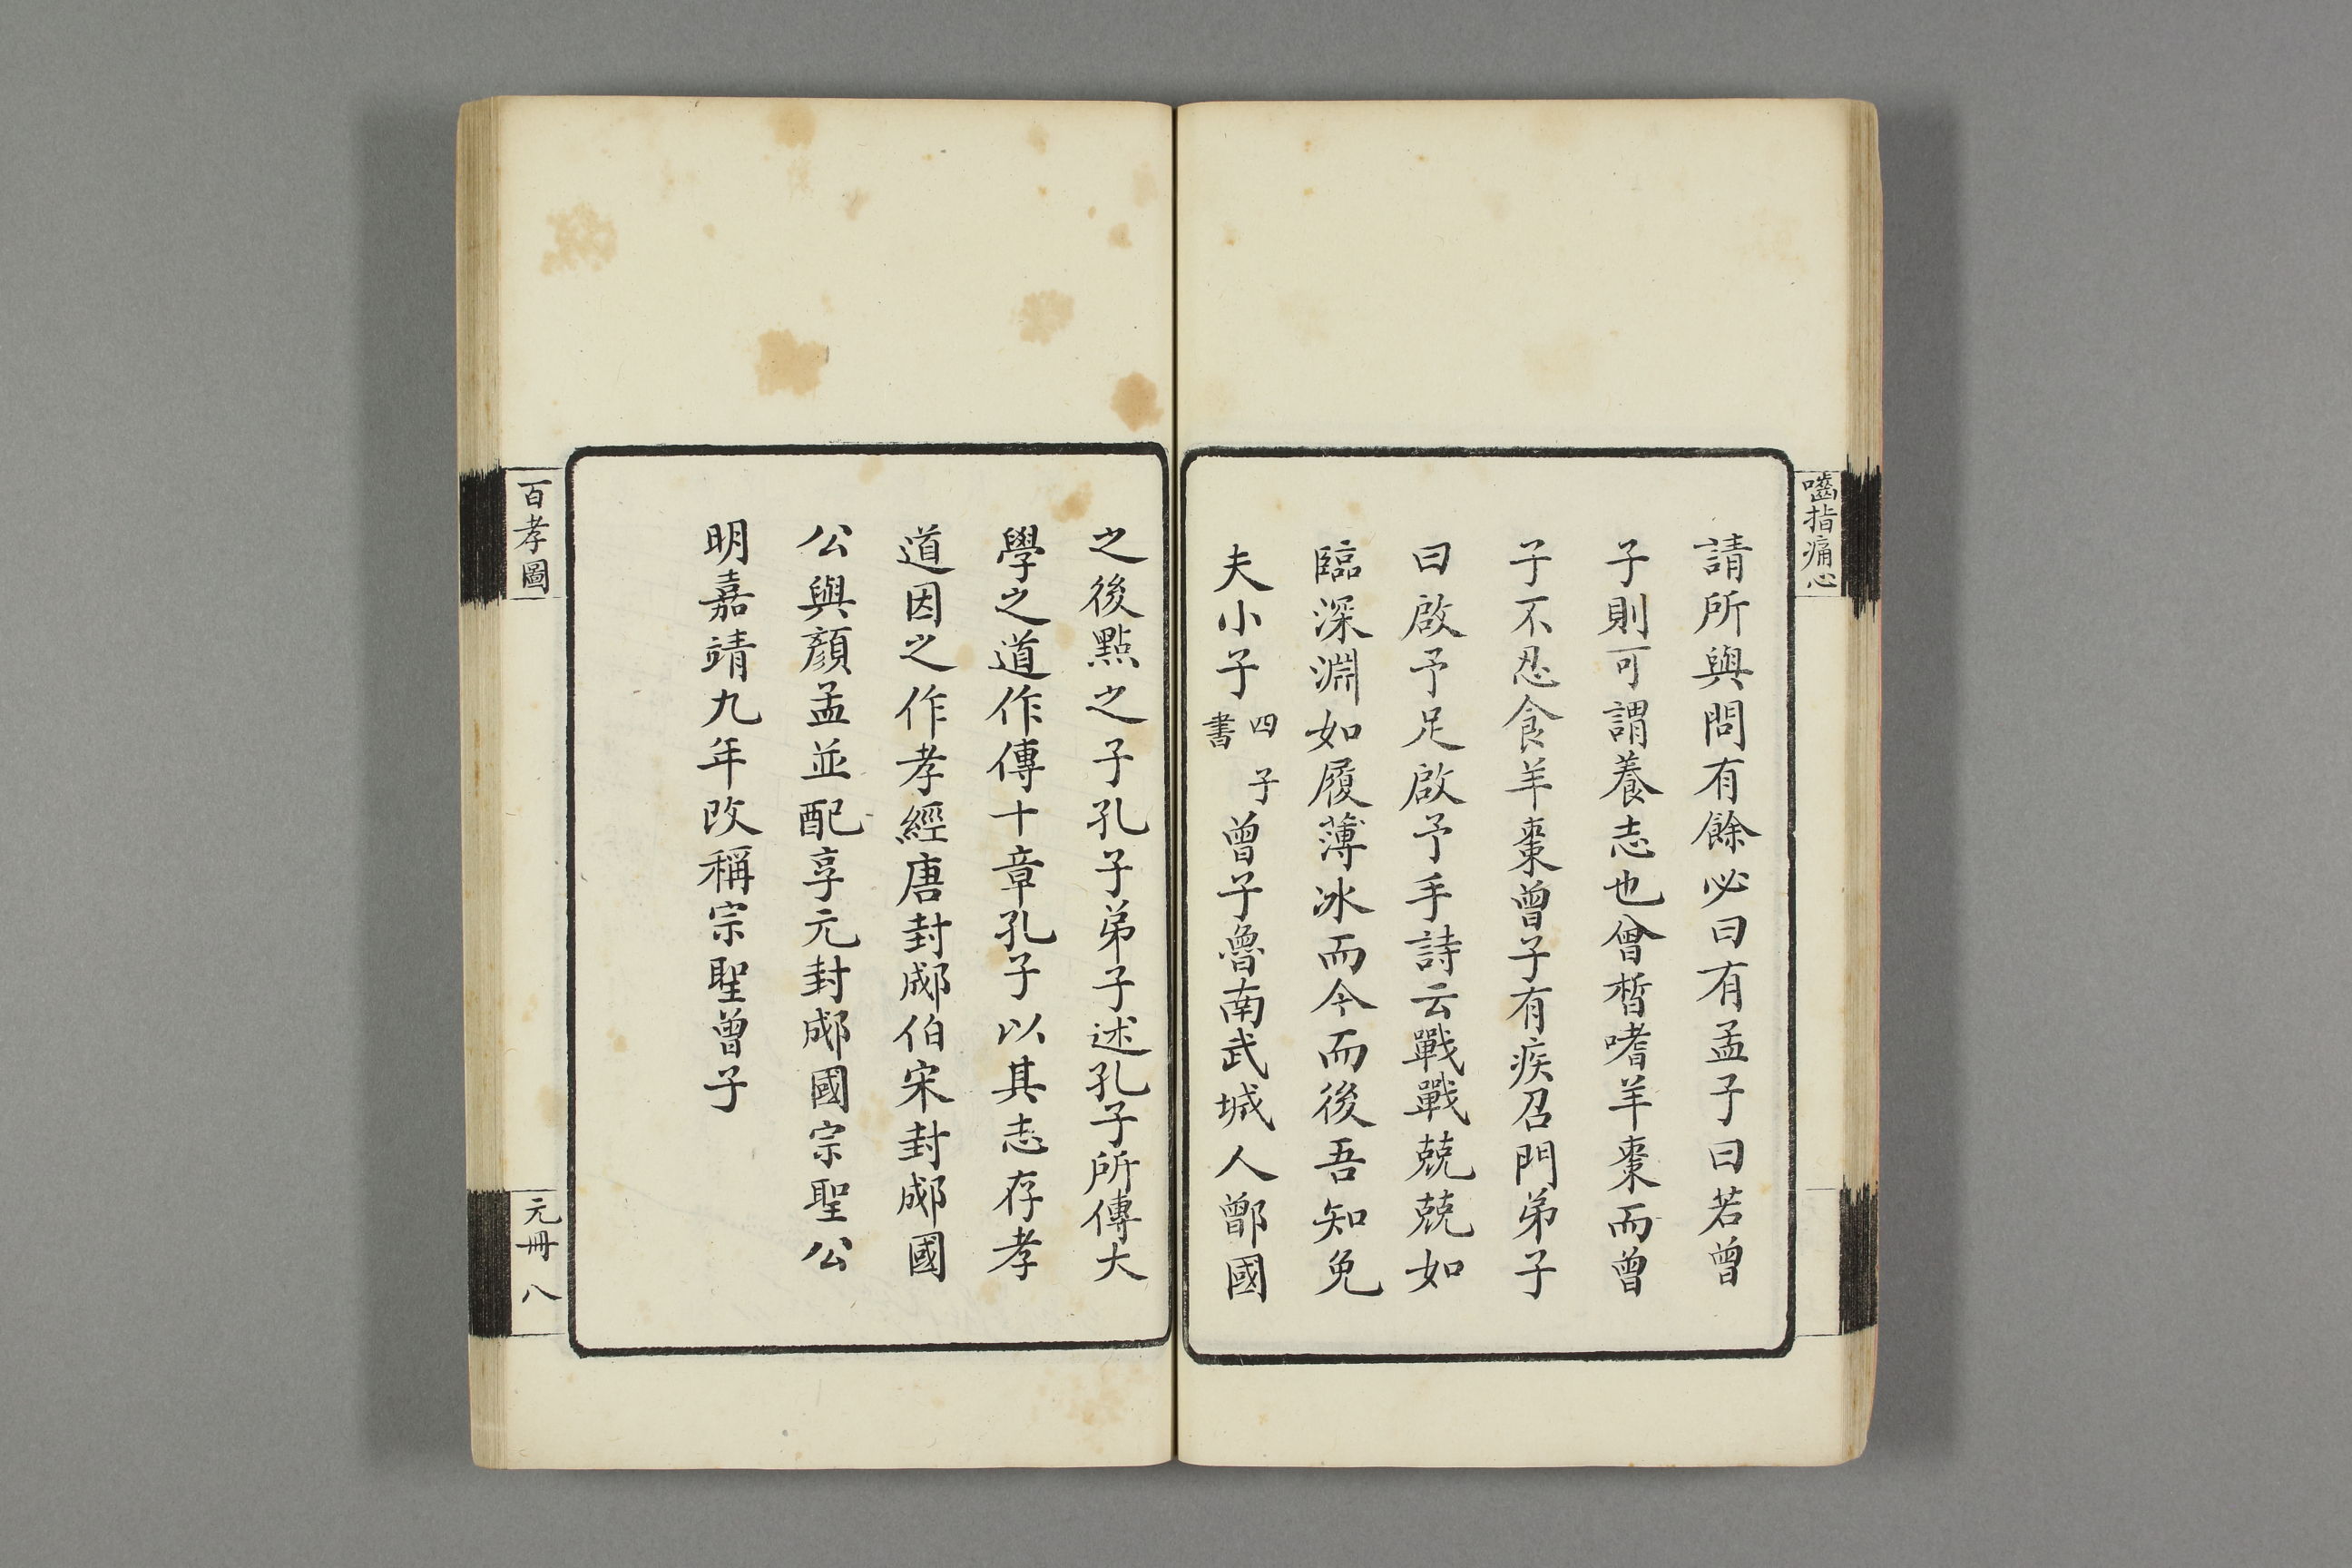 嚙指痛心
請所與問有餘必曰有孟子曰若曾
子則可謂養志也曾晳嗜羊棗而曾
子不忍食羊棗曾子有疾召門弟子
曰啟予足啟予手詩云戰戰兢兢如
臨深淵如履薄冰而今而後吾知免
夫小子四子書曾子魯南武城人鄫國
之後點之子孔子弟子述孔子所傳大
學之道作傳十章孔子以其志存孝
道因之作孝經唐封郕伯宋封郕國
公與顏孟並配享元封郕國宗聖公
明嘉靖九年改稱宗聖曾子
百孝圖
元冊 八